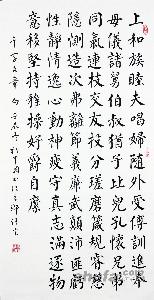 上和下睦夫唱婦隨外受傅訓入奉
母儀諸姑伯叔猶子比兒孔懷兄弟
同氣連枝交友投分切磨箴規仁慈
隱惻造次弗離節義廉退顛沛匪虧
性靜情逸心動神疲守真志滿逐物
意移堅持雅操好爵自縻
千字文